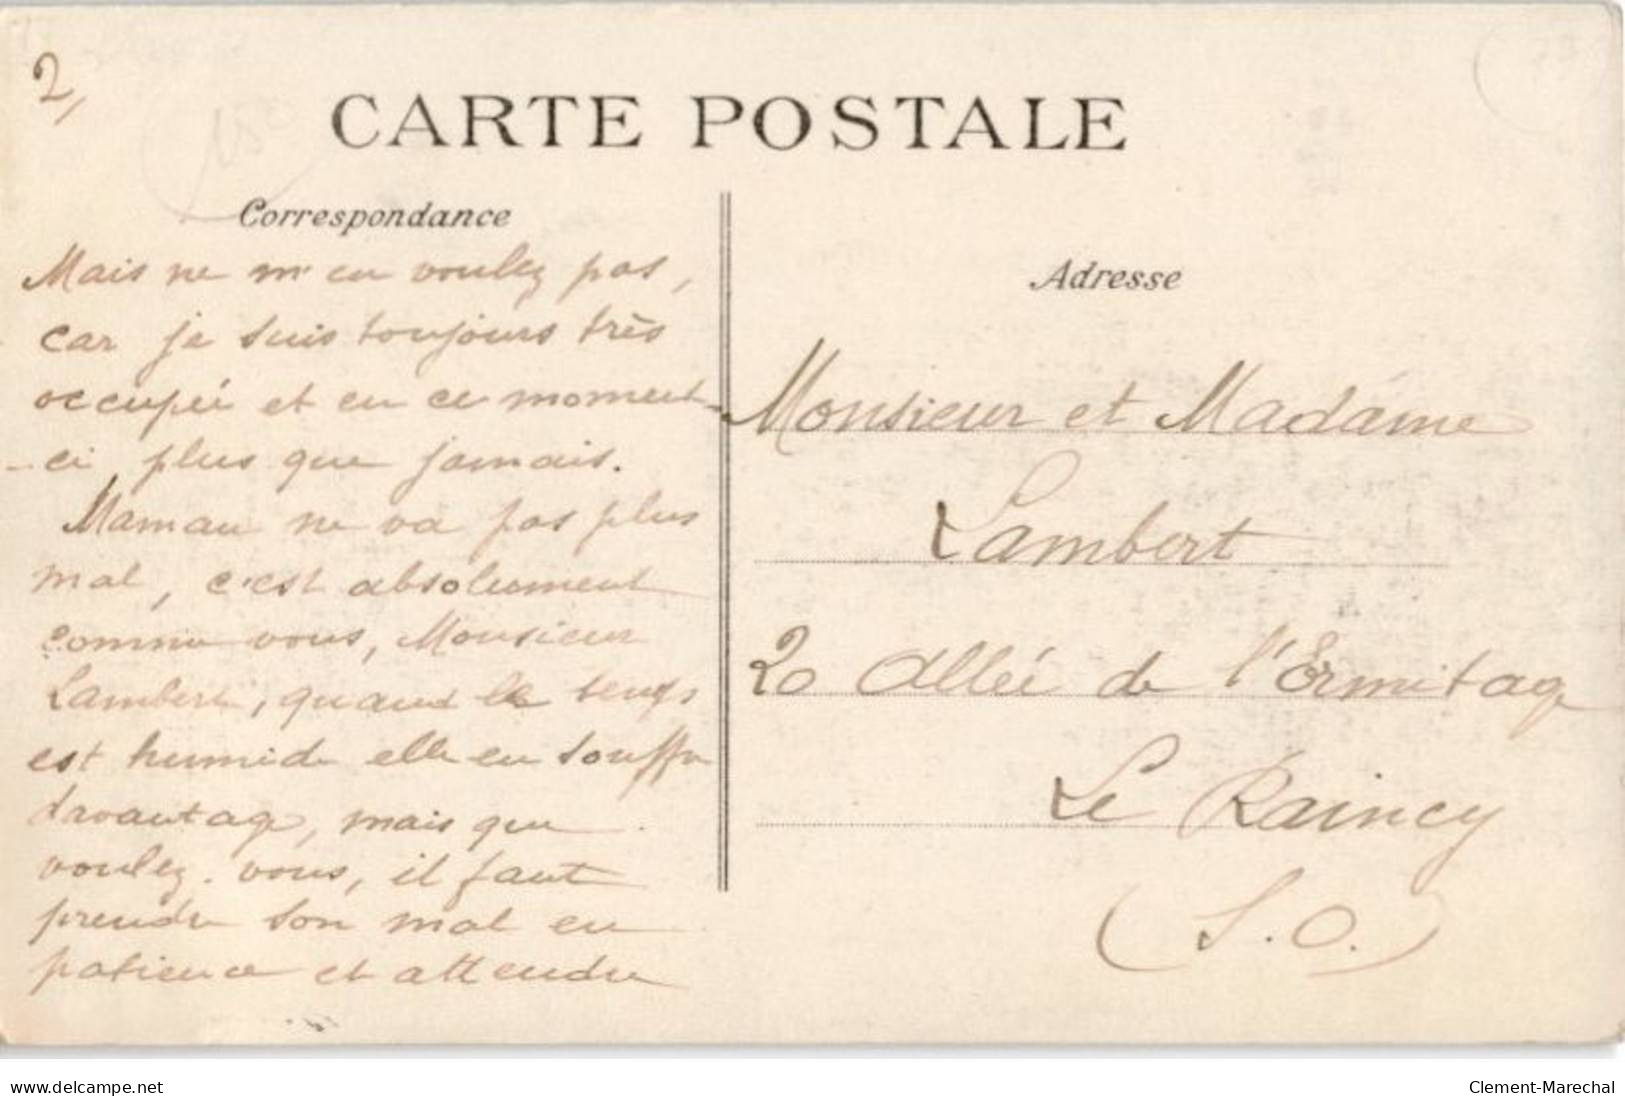 2,
150
CARTE POSTALE
Correspondance
Mais ne m'en voulez pas,
car je suis toujours très
occupée et en ce moment
-ci plus que jamais.
Maman ne va pas plus
mal, c'est absolument
comme vous, Monsieur
Lambert, quand le temps
est humide elle en souffre
davantage, mais que
voulez-vous, il faut
prendre son mal en
patience et attendre
Adresse
Monsieur et Madame
Lambert
20 Allée de l'Ermitage
Le Raincy
(S.O.)
www.delcampe.net
Clement-Marechal